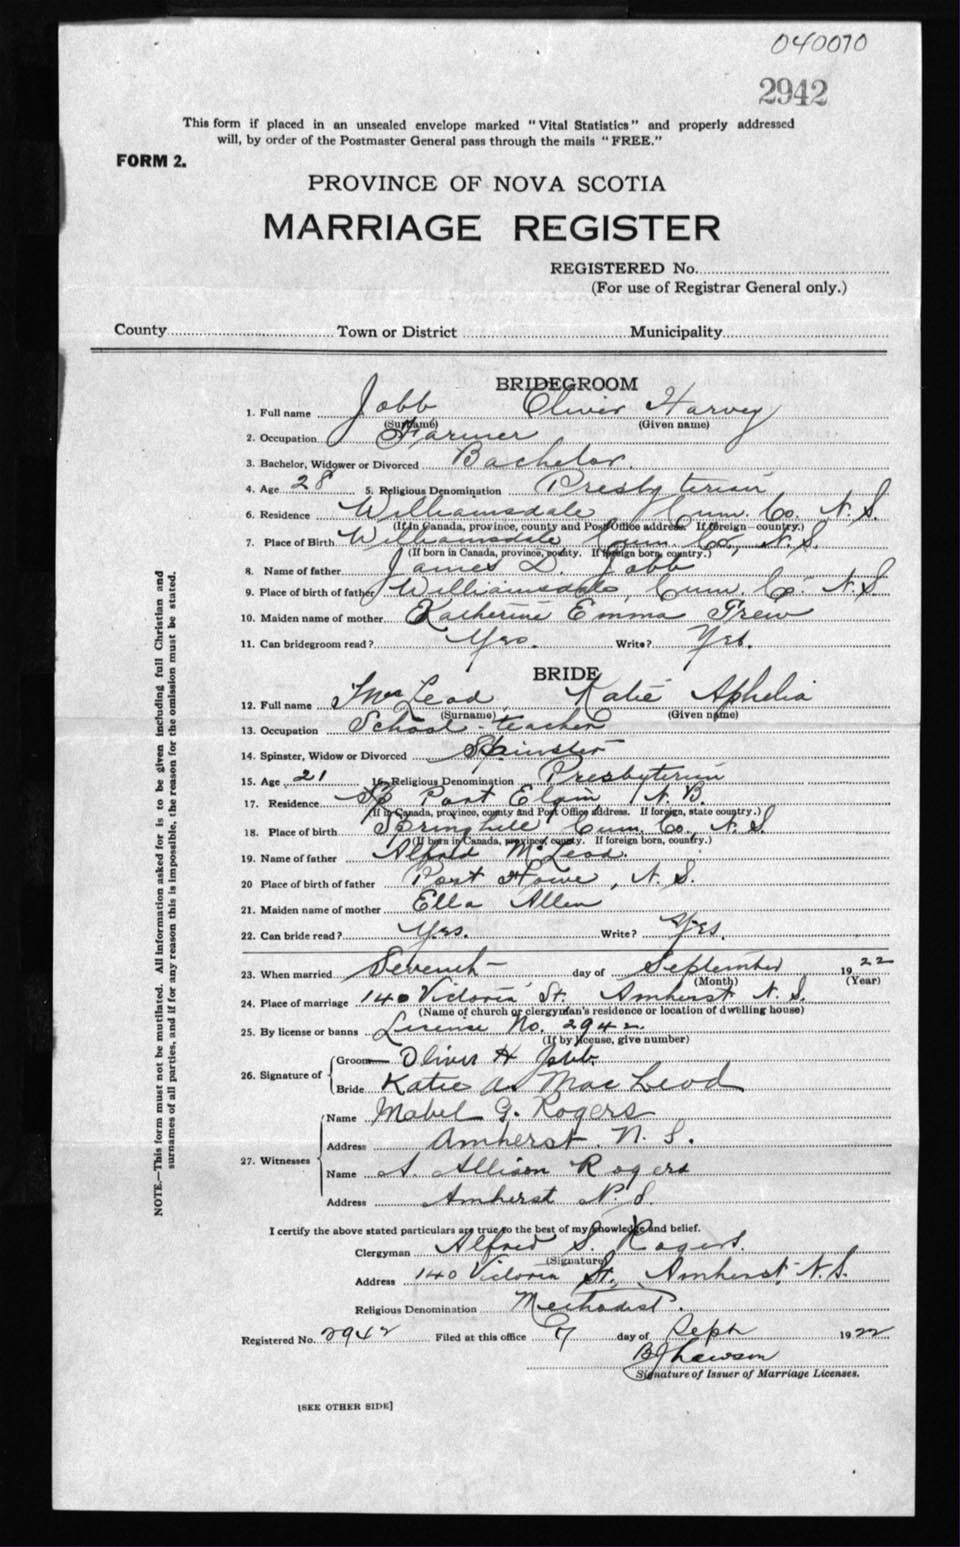 040070
2942
This form if placed in an unsealed envelope marked "Vital Statistics" and properly addressed
will, by order of the Postmaster General pass through the mails "FREE."
FORM 2.
PROVINCE OF NOVA SCOTIA
MARRIAGE REGISTER
REGISTERED No.
(For use of Registrar General only.)
County Town or District Municipality
BRIDEGROOM
1. Full name Jobb Oliver Harvey
(Surname) (Given name)
2. Occupation Farmer
3. Bachelor, Widower or Divorced Bachelor.
4. Age 28 5. Religious Denomination Presbyterian
6. Residence Williamsdale Cum. Co. N. S.
(If in Canada, province, county and Post Office address. If foreign—country.)
7. Place of Birth Williamsdale Cum Co., N. S.
(If born in Canada, province, county. If foreign born, country.)
8. Name of father James D. Jobb
9. Place of birth of father Williamsdale, Cum. Co. N. S
10. Maiden name of mother Katherine Emma
11. Can bridegroom read? Yes. Write? Yes.
BRIDE
12. Full name McLeod Katie Aphelia
(Surname) (Given name)
13. Occupation School-teacher
14. Spinster, Widow or Divorced Spinster
15. Age 21 16. Religious Denomination Presbyterian
17. Residence Port Elgin N. B.
(If in Canada, province, county and Post Office address. If foreign, state country.)
18. Place of birth Springhill Cum. Co., N. S
(If born in Canada, province, county. If foreign born, country.)
19. Name of father Alfred McLeod.
20 Place of birth of father Port Howe, N. S.
21. Maiden name of mother Ella Allen
22. Can bride read? Yes. Write? Yes.
23. When married Seventh day of September 1922
(Month) (Year)
24. Place of marriage 140 Victoria St. Amherst N. S.
(Name of church or clergyman's residence or location of dwelling house)
25. By license or banns License No. 2942
(If by license, give number)
26. Signature of Groom Oliver H Jobb
Bride Katie A. MacLeod
27. Witnesses Name Mabel G. Rogers
Address Amherst. N. S.
Name A. Allison Rogers
Address Amherst N. S.
I certify the above stated particulars are true to the best of my knowledge and belief.
Clergyman Alfred S. Rogers.
(Signature)
Address 140 Victoria St., Amherst, N. S.
Religious Denomination Methodist.
Registered No. 2942 Filed at this office 7 day of Sept 1922
Lawson
Signature of Issuer of Marriage Licenses.
[SEE OTHER SIDE]
NOTE.—This form must not be mutilated. All information asked for is to be given including full Christian and
surnames of all parties, and if for any reason this is impossible, the reason for the omission must be stated.